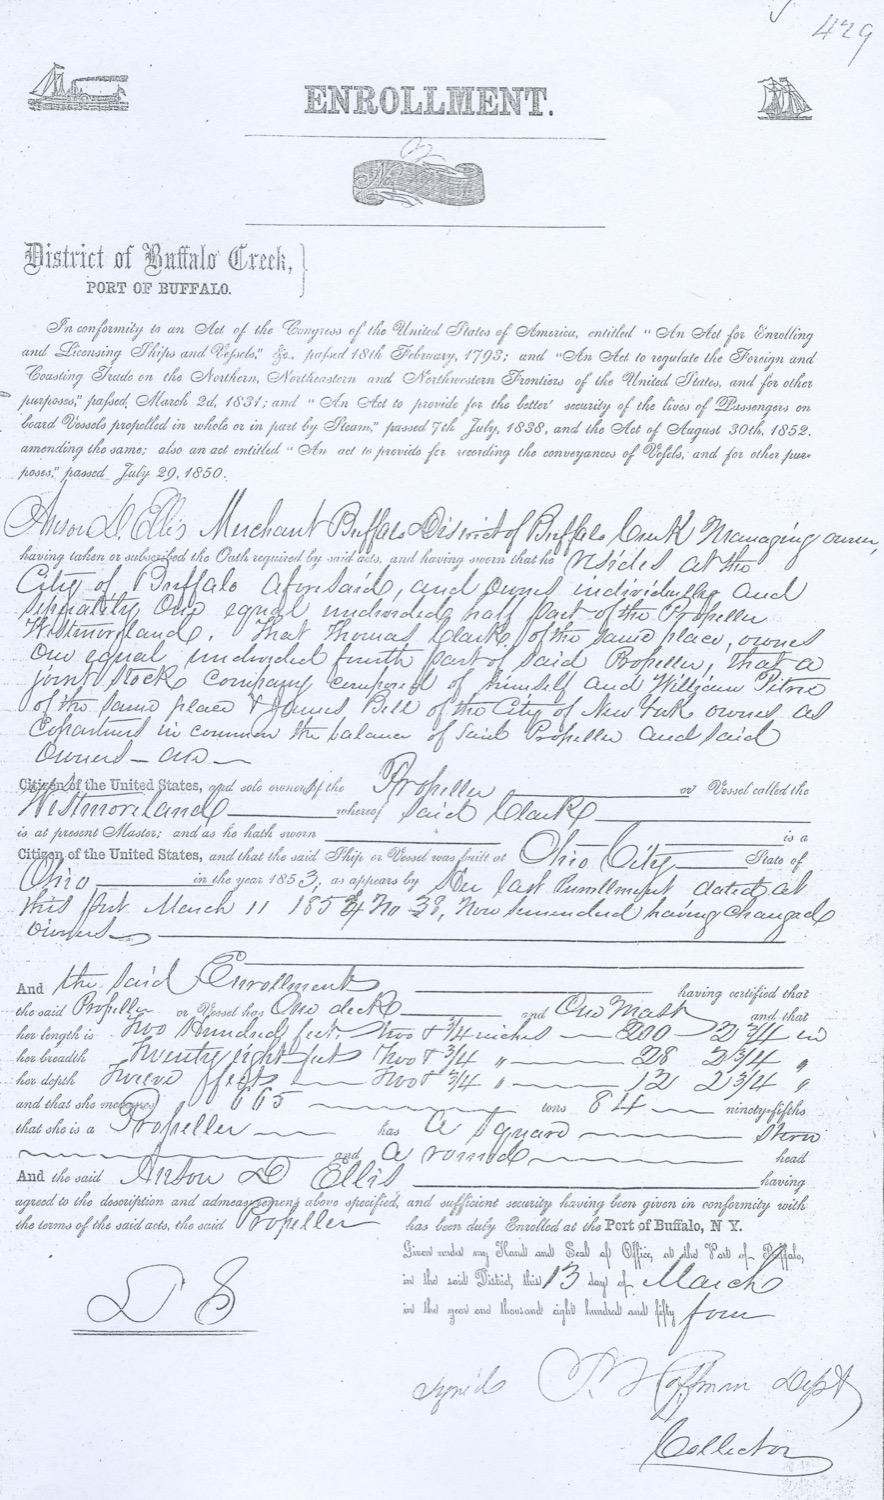 429
ENROLLMENT.
No
District of Buffalo Creek,
PORT OF BUFFALO.
In conformity to an Act of the Congress of the United States of America, entitled "An Act for Enrolling
and Licensing Ships and Vessels," &c., passed 18th February, 1793; and "An Act to regulate the Foreign and
Coasting Trade on the Northern, Northeastern and Northwestern Frontiers of the United States, and for other
purposes," passed, March 2d, 1831; and "An Act to provide for the better security of the lives of Passengers on
board Vessels propelled in whole or in part by Steam," passed 7th July, 1838, and the Act of August 30th, 1852.
amending the same; also an act entitled "An act to provide for recording the conveyances of Vessels, and for other pur-
poses," passed July 29, 1850.
Anson D. Ellis Merchant Buffalo District of Buffalo Creek Managing owner,
having taken or subscribed the Oath required by said acts, and having sworn that he resides at the
City of Buffalo aforesaid, and owns individually and
seperately One equal undivided half part of the Propeller
Westmoreland. That Thomas Clark of the same place, owns
One equal undivided fourth part of said Propeller, that a
joint stock company composed of himself and William Petrie
of the same place & James Bell of the City of New York owns as
Copartners in common the balance of said Propeller and said
Owners are
Citizen of the United States, and sole owners of the Propeller or Vessel called the
Westmoreland whereof said Clark
is at present Master; and as he hath sworn is a
Citizen of the United States, and that the said Ship or Vessel was built at Ohio City State of
Ohio in the year 1853, as appears by Her last Enrollment dated at
this port March 11 1854 No 38, Now surrendered having changed
owners
And the said Enrollment having certified that
the said Propeller or Vessel has One deck and One Mast and that
her length is Two Hundred feet, two & 3/4 inches 200 2 3/4 in
her breadth Twenty eight feet two & 3/4 " 28 2 3/4 "
her depth Twelve feet two & 3/4 " 12 2 3/4 "
and that she measures 665 tons 84 ninety-fifths
that she is a Propeller has a square stern
and a round head
And the said Anson D Ellis having
agreed to the description and admeasurement above specified, and sufficient security having been given in conformity with
the terms of the said acts, the said Propeller has been duly Enrolled at the Port of Buffalo, N Y.
Given under my Hand and Seal of Office, at the Port of Buffalo,
in the said District, this 13 day of March
in the year one thousand eight hundred and fifty four
L S
Signed Hoffman Dept
Collector